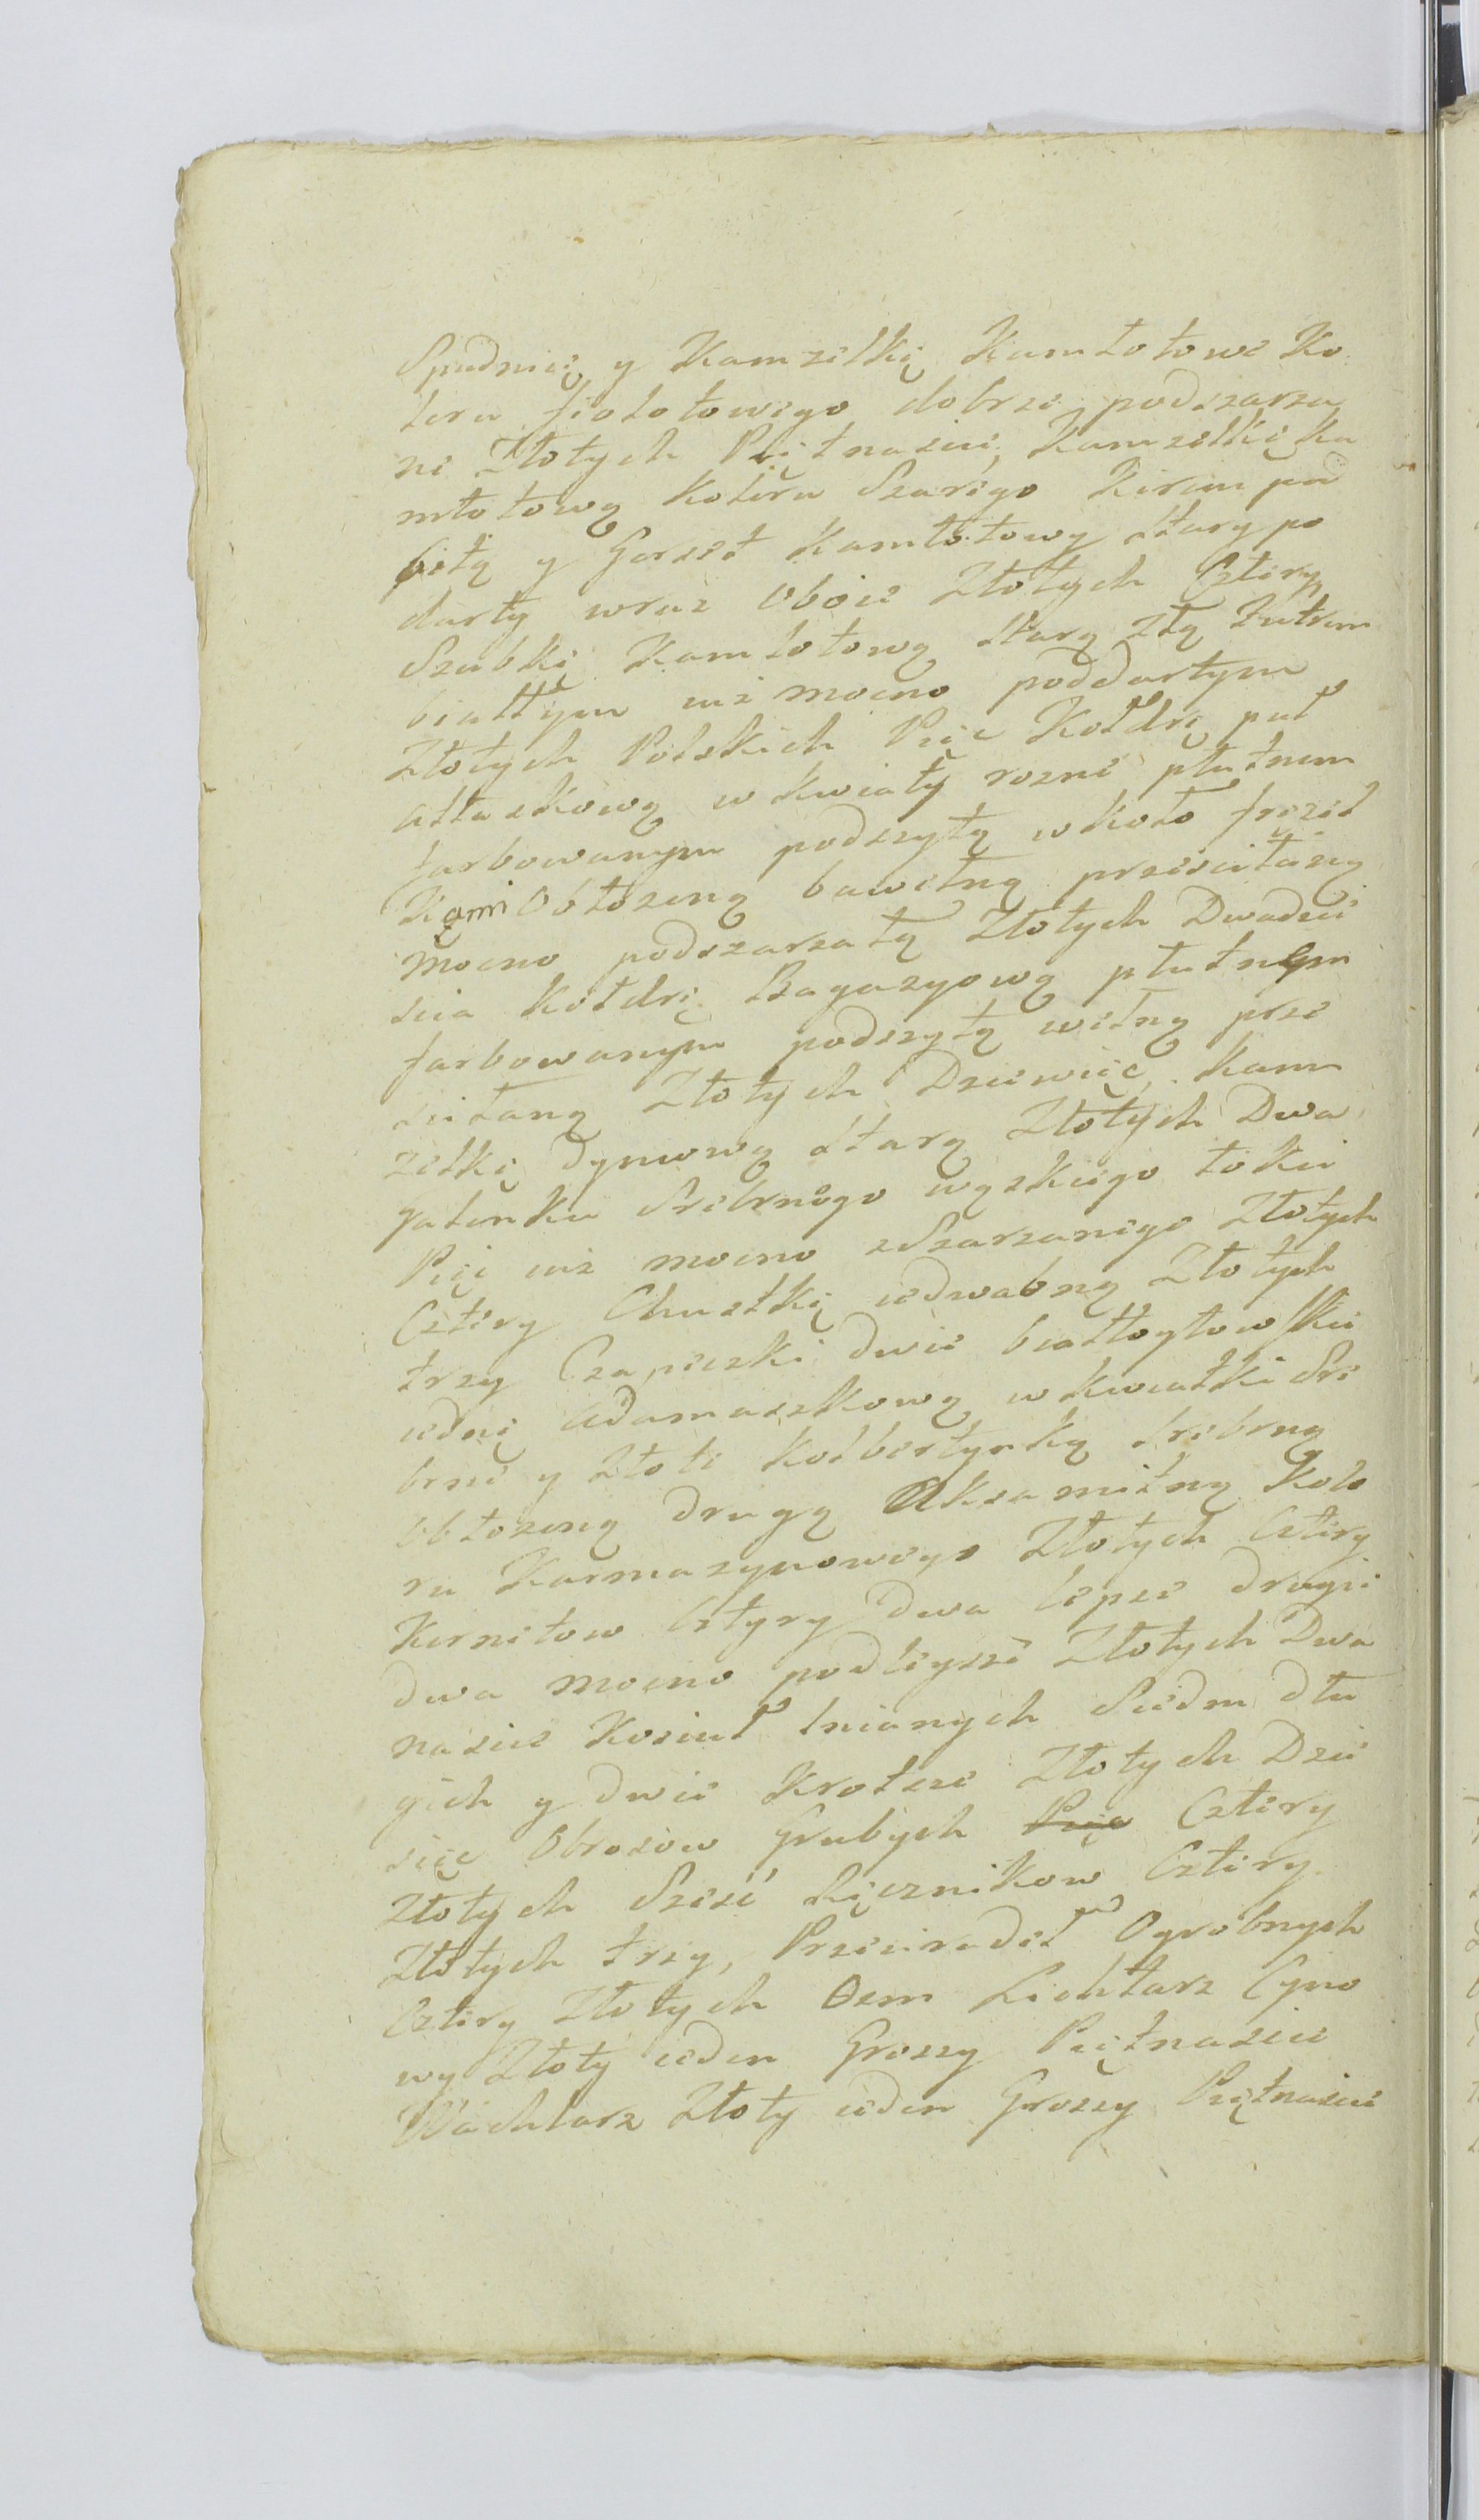 Spudnicę y Kamzelkę Kamlotowe Ko
leru fiolotowego dobrze podszarza
ne Złotych Piętnascie, Kamzelkę Ka
mlotową Koleru Szarego Kirem pod
bitą y Gorset Kamlotowy stary po
darty wraz Oboie Złotych Cztery
Szubkę Kamlotową starą złą Futrem
białłym iuż mocno poddartym
Złotych Polskich Pięć Kołdrę puł
atłaskową w kwiaty rozne płutnem
farbowanym podszytą wkoło frezel
Kami Obłozeną bawełną przesciełaną
mocno podszarzałą Złotych Dwadzie
scia Kołdrę Bagazyową płutnem
farbowanym podszytą wełną prze
sciełaną Złotych Dziewięć, kam
zelkę dymową starą Złotych Dwa
Galonku Srebrnego wąskiego łokci
Pięć iuż mocno zszarzanego Złotych
Cztery Chustkę iedwabną Złotych
trzy Czapeczki dwie białłogłowskie
iednę Adamaszkową w kwiatki Sre
brne y złote Kolbertynką srebrną
obłozeną drugą Aksamitną Kolo
ru Karmazynowego Złotych Cztery
Kornetow Cztyry dwa lepsze drugie
dwa mocno podleysze Złotych Dwa
nascie Koszul lnianych Siedm dłu
gich y dwie Krotsze Złotych Dzie
sięć Obrusow Grubych Pięć Cztery
Złotych Sześć Ręcznikow Cztery
Złotych trzy, Prześcieradeł pad Ogrobnych
Cztery Złotych Osm Lichtarz Cyno
wy Złoty ieden Groszy Piętnascie
Wachlarz Złoty ieden Groszy Piętnascie